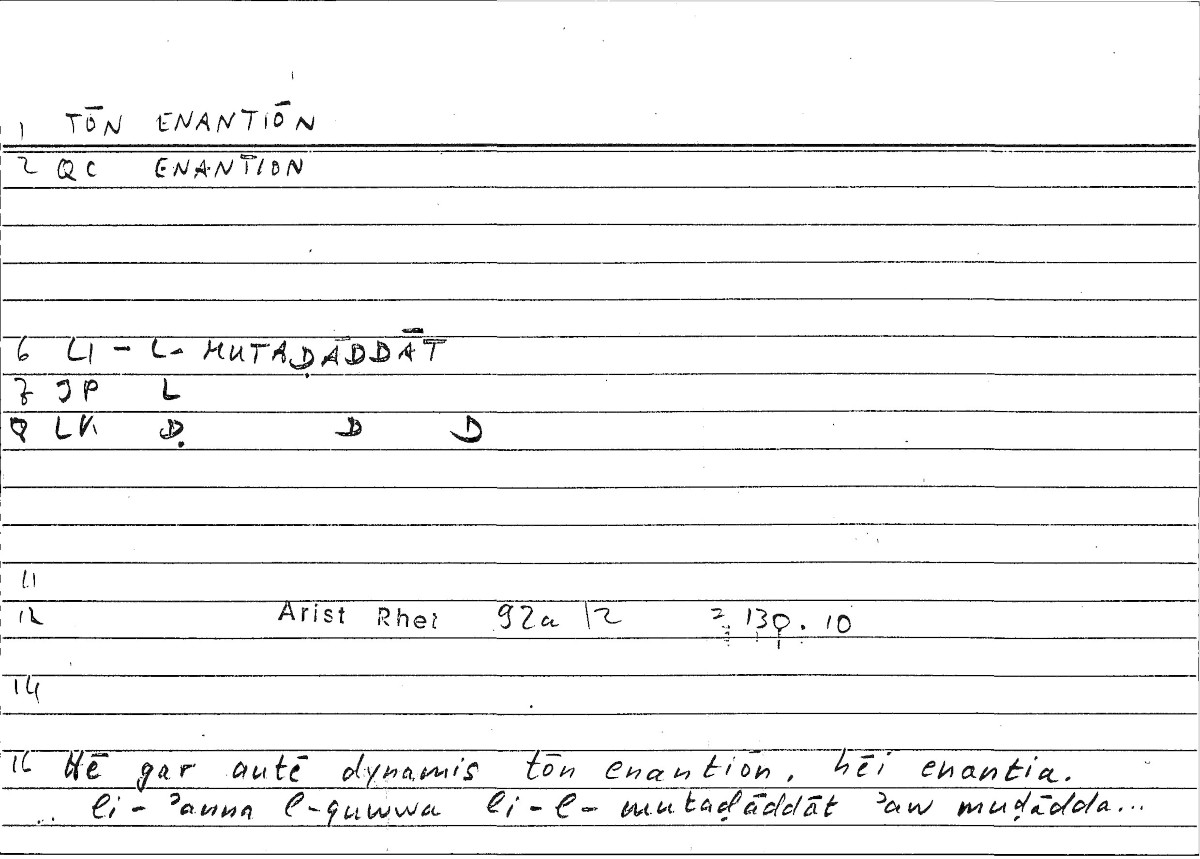 1 TŌN ENANTIŌN
2 QC ENANTION
6 LI - L- MUTAḌĀDDĀT
7 JP L
8 LK Ḍ D D
11
12 Arist Rhet 92a 12 130.10
14
16 Hē gar autē dynamis tōn enantiōn, hēi enantia.
.. li-ʾanna l-quwwa li-l-mutaḍāddāt ʾaw muḍādda...